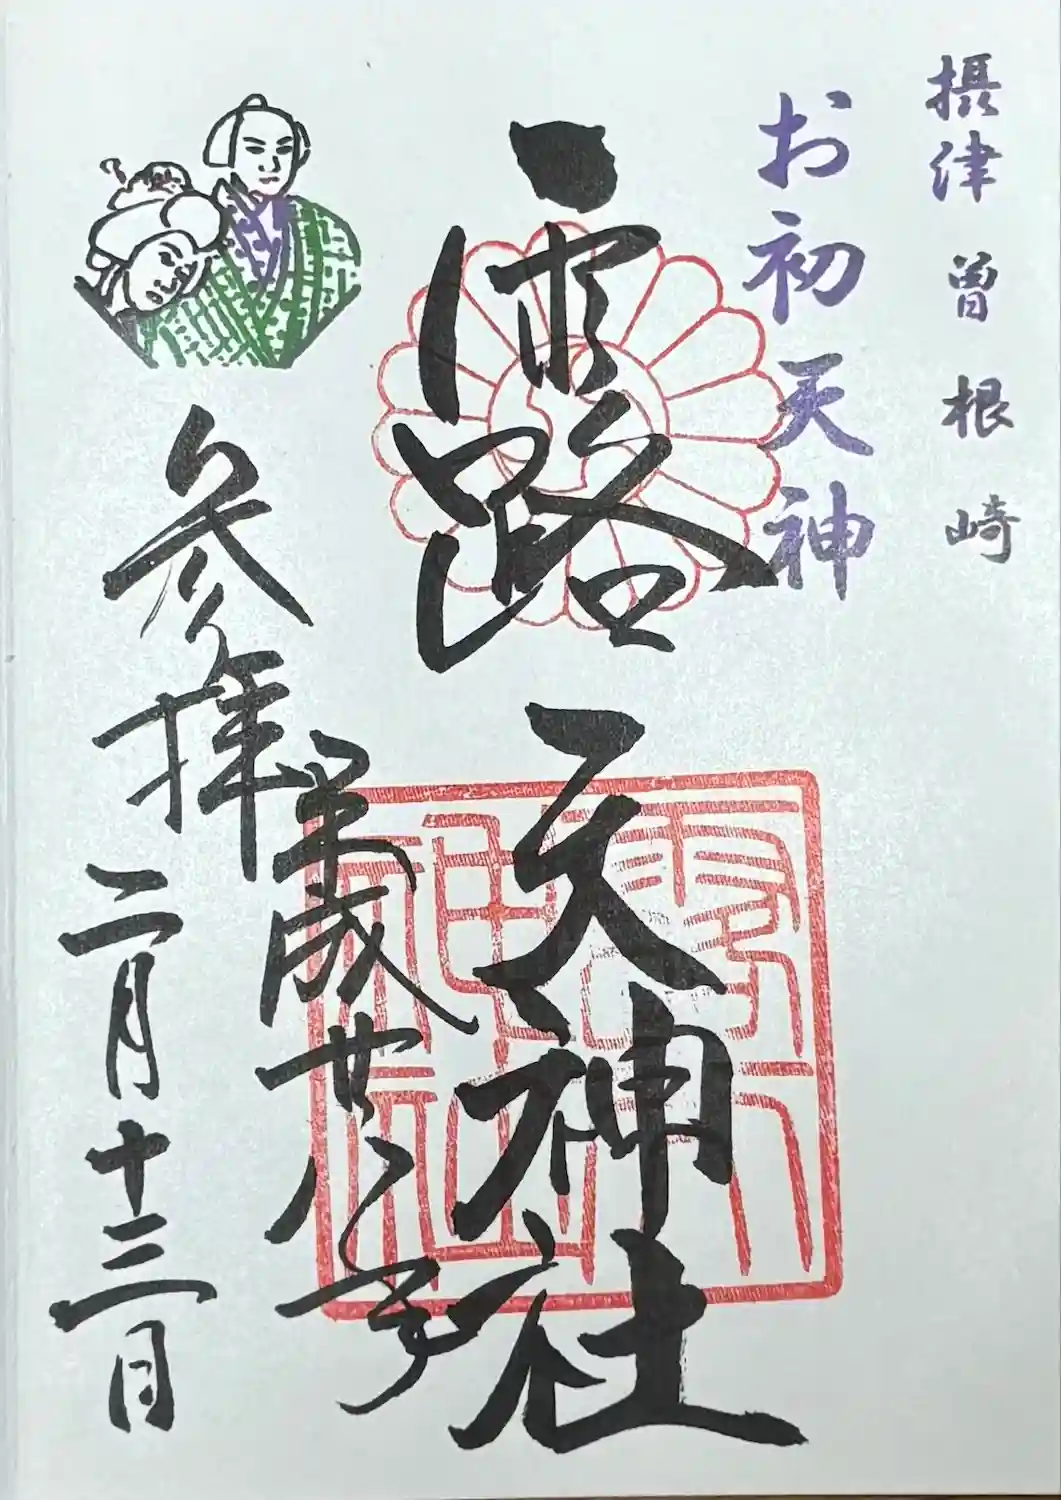 摂津曽根崎
お初天神
露天神社
平成廿八年
参拝二月十三日